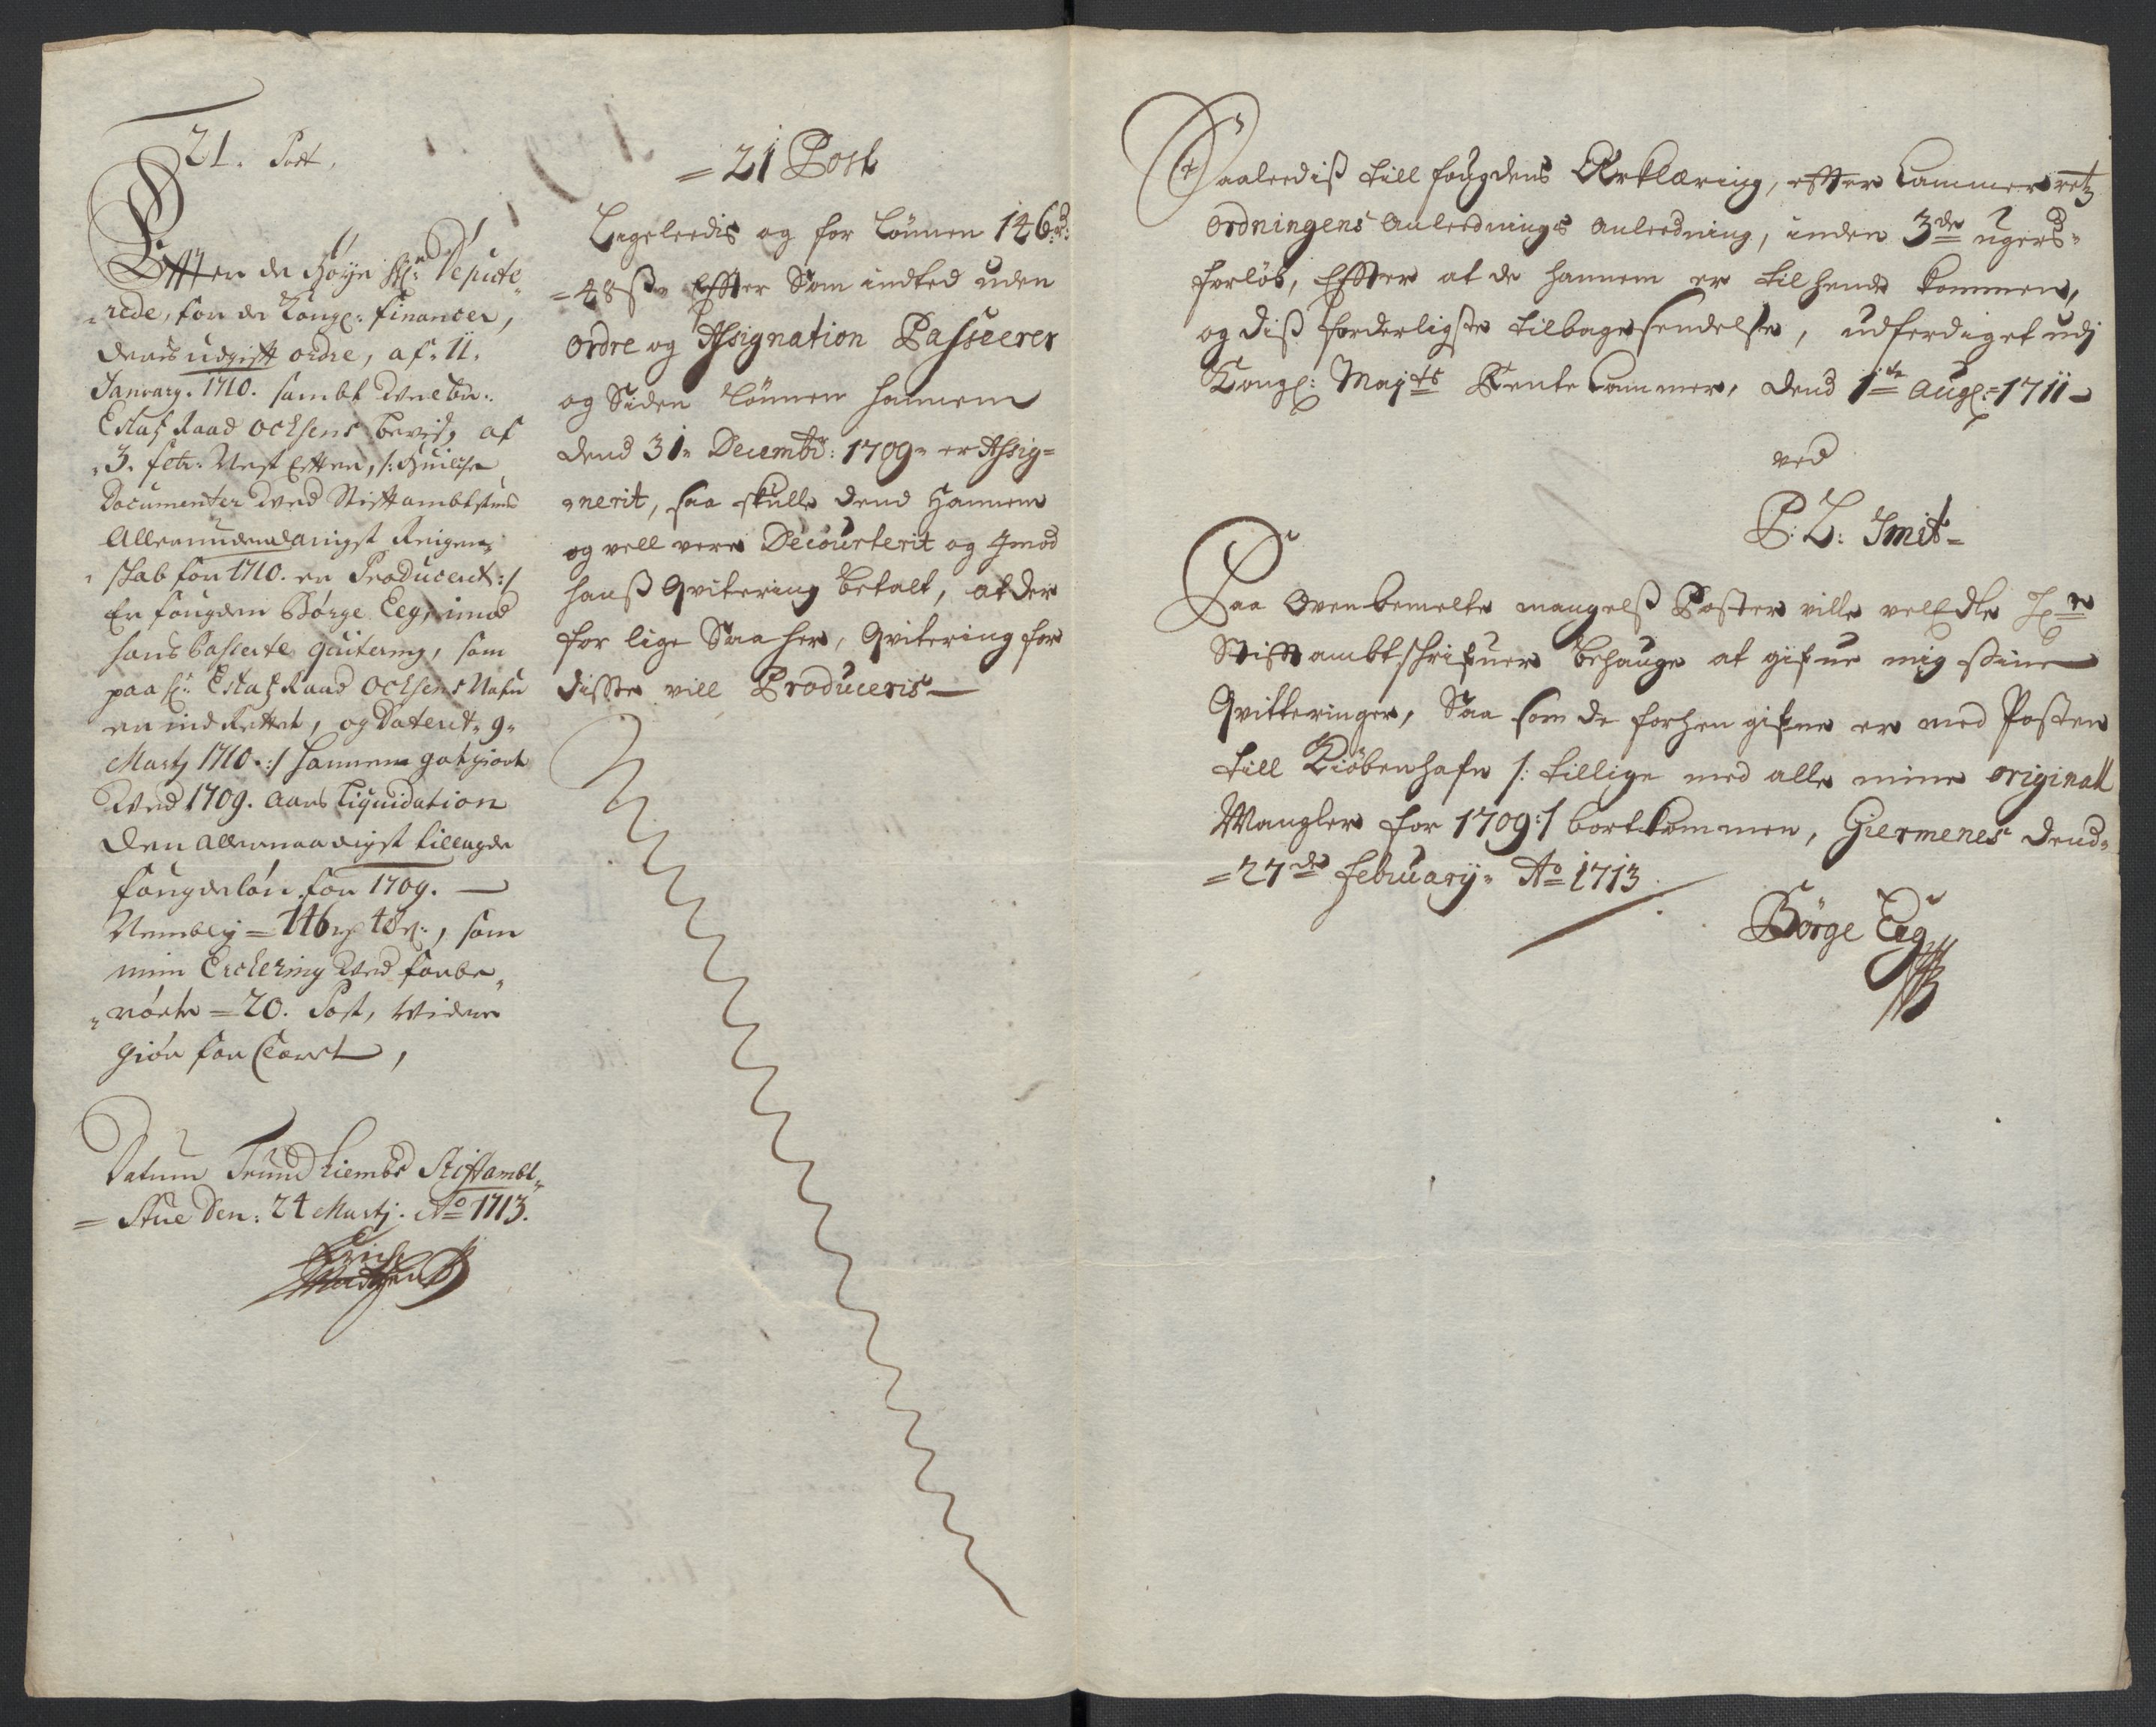 21. Post.
Efften de Høye H: Depute-
rede, for de Kongl: Financer,
deris udgifft ordre, af 11.
January. 1710. sambt
Estatz Raad Ochsens beviis, af
3. febr: Nest Effter, /: huilche
Documenter ved Stiftambtstuens
Allerunderdanigst Reigen-
skab for 1710. er Producerit :/
Er fougden Børge Eeg, imod
hans Passerte quitering, som
paa H: Estatz Raad Ochsens Nafn
er ind Rettet, og Daterit 9
Martj 1710 :/ hannem gotgiort
Ved 1709. Aars Liquidation
den allernaadigst tillagde
fougderløn for 1709.
Nemblig = 146 rd 48 s:, som
min Erclering Ved forbe-
rørte = 20. Post, widere
giør for Claret,
Datum Trundhiembs Stiftambt-
= Stue Den: 24 Martj. Ao 1713.
Erich
Madtzen
= 21 Post
Ligeleedis og for Lønnen 146 rd:
= 48 ß Effter Som indted uden
ordre og Assignation Passerer
og Siden Lønnen hannem
dend 31 Decembr: 1709 er Assig=
nerit, saa skulle dend Hannem
og vell vere Decourterit og Jmod
hanß Qvitering betalt, at der
for lige Saa her, Qvitering for
disse vill Produceris
Saaleediß till fougdens Erklæring, effter Cammer retz
ordningens Anleednings Anleedning, inden 3de ugers
forløb, Effter at de hannem er til hende kommen,
og diß forderligste tilbagesendelse, udferdiget udj
Kongl: Mayts Rente Cammer, dend 1te Aug: 1711
ved
P: L: Smit
Paa Ovenbemelte mangelß Poster ville velEdle Hr
Stiftambtschrifuer behage at gifue mig sine
Qvitteringer, Saa som de forhen gifne er med Posten
till Kiøbenhafn /: tillige med alle mine originall
Mangler for 1709 :/ bortkommen, Giermenes dend
= 27de february Ao 1713
Børge Eeg